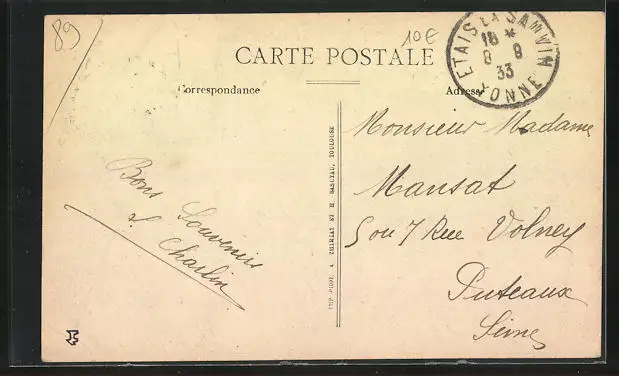 89
10€
CARTE POSTALE
Correspondance
Adresse
ETAIS LA SAUVIN
18 *
9 9
33
YONNE
Bons Souvenirs
Charlin
IMP.-PHOT. A. THIRIAT ET H. BASUYAU, TOULOUSE
Monsieur Madame
Mansat
5 ou 7 Rue Volney
Puteaux
Seine